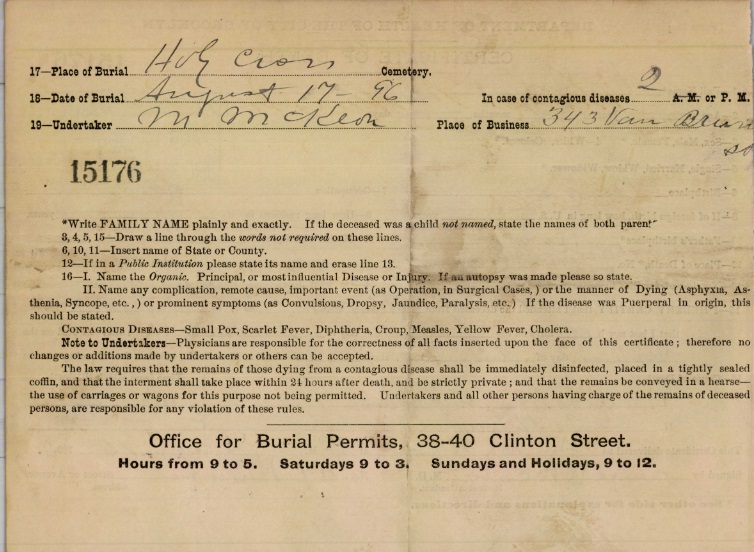 17—Place of Burial Holy Cross Cemetery.
18—Date of Burial August 17-96 In case of contagious diseases 2 A. M. or P. M.
19—Undertaker M McKeon Place of Business 343 Van Brunt
st
15176
*Write FAMILY NAME plainly and exactly. If the deceased was a child not named, state the names of both parent
3, 4, 5, 15—Draw a line through the words not required on these lines.
6, 10, 11—Insert name of State or County.
12—If in a Public Institution please state its name and erase line 13.
16—I. Name the Organic. Principal, or most influential Disease or Injury. If an autopsy was made please so state.
II. Name any complication, remote cause, important event (as Operation, in Surgical Cases,) or the manner of Dying (Asphyxia, As-
thenia, Syncope, etc.,) or prominent symptoms (as Convulsions, Dropsy, Jaundice, Paralysis, etc.) If the disease was Puerperal in origin, this
should be stated.
CONTAGIOUS DISEASES—Small Pox, Scarlet Fever, Diphtheria, Croup, Measles, Yellow Fever, Cholera.
Note to Undertakers—Physicians are responsible for the correctness of all facts inserted upon the face of this certificate; therefore no
changes or additions made by undertakers or others can be accepted.
The law requires that the remains of those dying from a contagious disease shall be immediately disinfected, placed in a tightly sealed
coffin, and that the interment shall take place within 24 hours after death, and be strictly private; and that the remains be conveyed in a hearse—
the use of carriages or wagons for this purpose not being permitted. Undertakers and all other persons having charge of the remains of deceased
persons, are responsible for any violation of these rules.
Office for Burial Permits, 38-40 Clinton Street.
Hours from 9 to 5. Saturdays 9 to 3. Sundays and Holidays, 9 to 12.